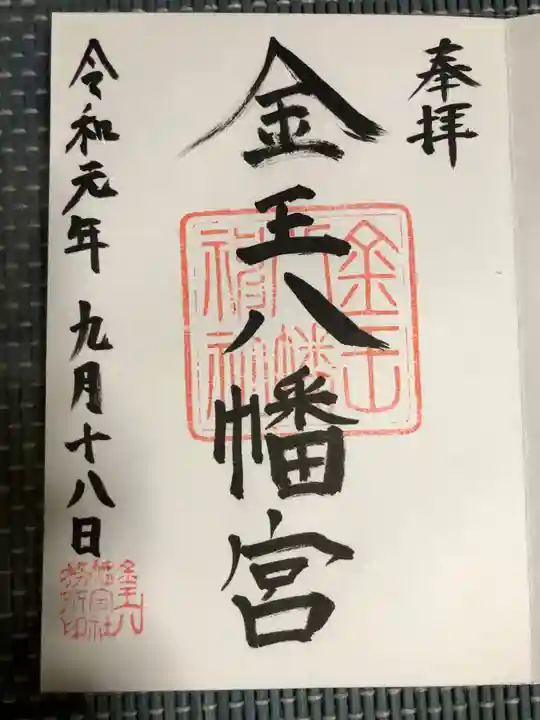 奉拝
金王八幡宮
令和元年 九月十八日
金王八
幡宮社
務所印